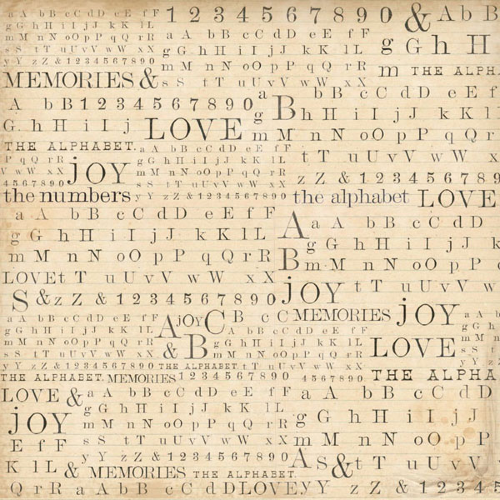 1 2 3 4 5 6 7 8 9 0 & A b B
a A b B c C d D e E f F
g G h H i I j J k K l L
g G h H
m M n N o O p P q Q r R
m THE ALPH
MEMORIES & s S t T u U v V w W x X
A b B 1 2 3 4 5 6 7 8 9 0
a b B c C d D e E f
G h H i I j LOVE
g B h H i I j J k K l L
m M n N o O p P q Q r
THE ALPHABET.
a A b B c C d D e E f F
JOY
g G h H i I j J k K l L
m M n N o O p P q Q r R
t T u U v V w W x
z Z & 1 2 3 4 5 6 7 8
the numbers y Y z Z & 1 2 3 4 5 6 7 8 9 0
the alphabet LOVE
a A b B c C d D e E f F
A a A b B c C d D
g G h H i I j J k K l L
g G h H i I j J
m M n N o O p P q Q r R
B m M n N o O p P
LOVE t T u U v V w W x X
JOY t T u U v V w
S & z Z & 1 2 3 4 5 6 7 8 9 0
a A b B c C d D e E f F
A JOY C B b c C MEMORIES JOY
g G h H i I j J k K l L
a A b B c C d D e E f F
m M n N o O p P q Q r R
& B g G h H i I j J k K l L
LOVE
s S t T u U v V w W x X
m M n N o O p P q Q r R
y Y z Z & 1 2 3 4 5 6 7 8 9 0 THE ALPHABET
THE ALPHABET. MEMORIES 1 2 3 4 5 6 7 8 9 0
4 5 6 7 8 9 0 THE ALPHA
LOVE & a A b B c C d D e E f F
a A b B c C d D
JOY g G h H i I j J k K l L
g G h H i I j J
m M n N o O p P q Q r R
m M n N o O p P
E f F s S t T u U v V w W x X
y Y z Z & 1 2 3 4 5 6 7 8 9 0
A s & t T u U v V
K l L & MEMORIES THE ALPHABET
Q r R a A b B c C d D LOVE y Y z Z & 1 2 3 4 5